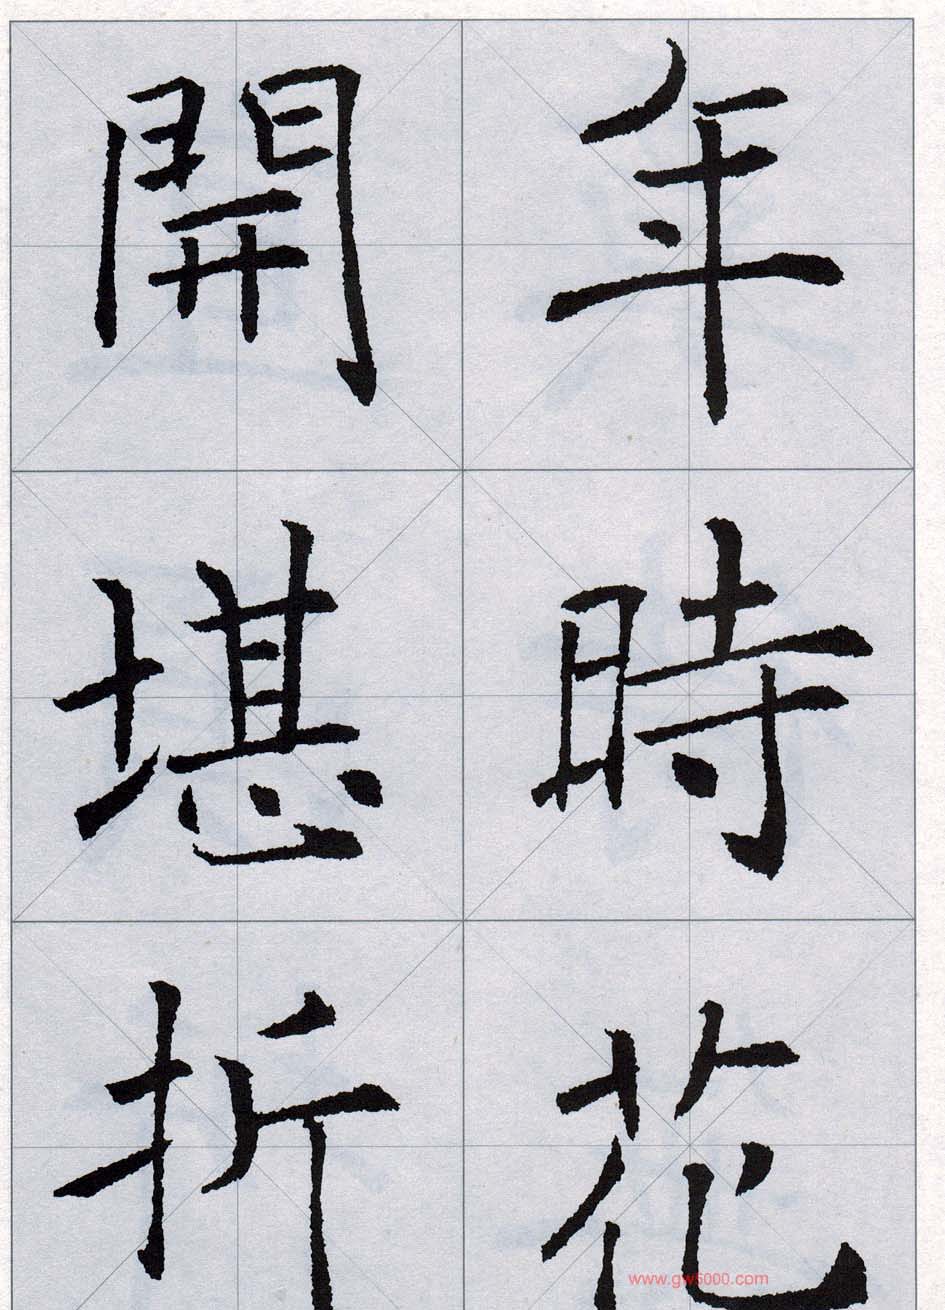 年時花
開堪折
www.gw5000.com